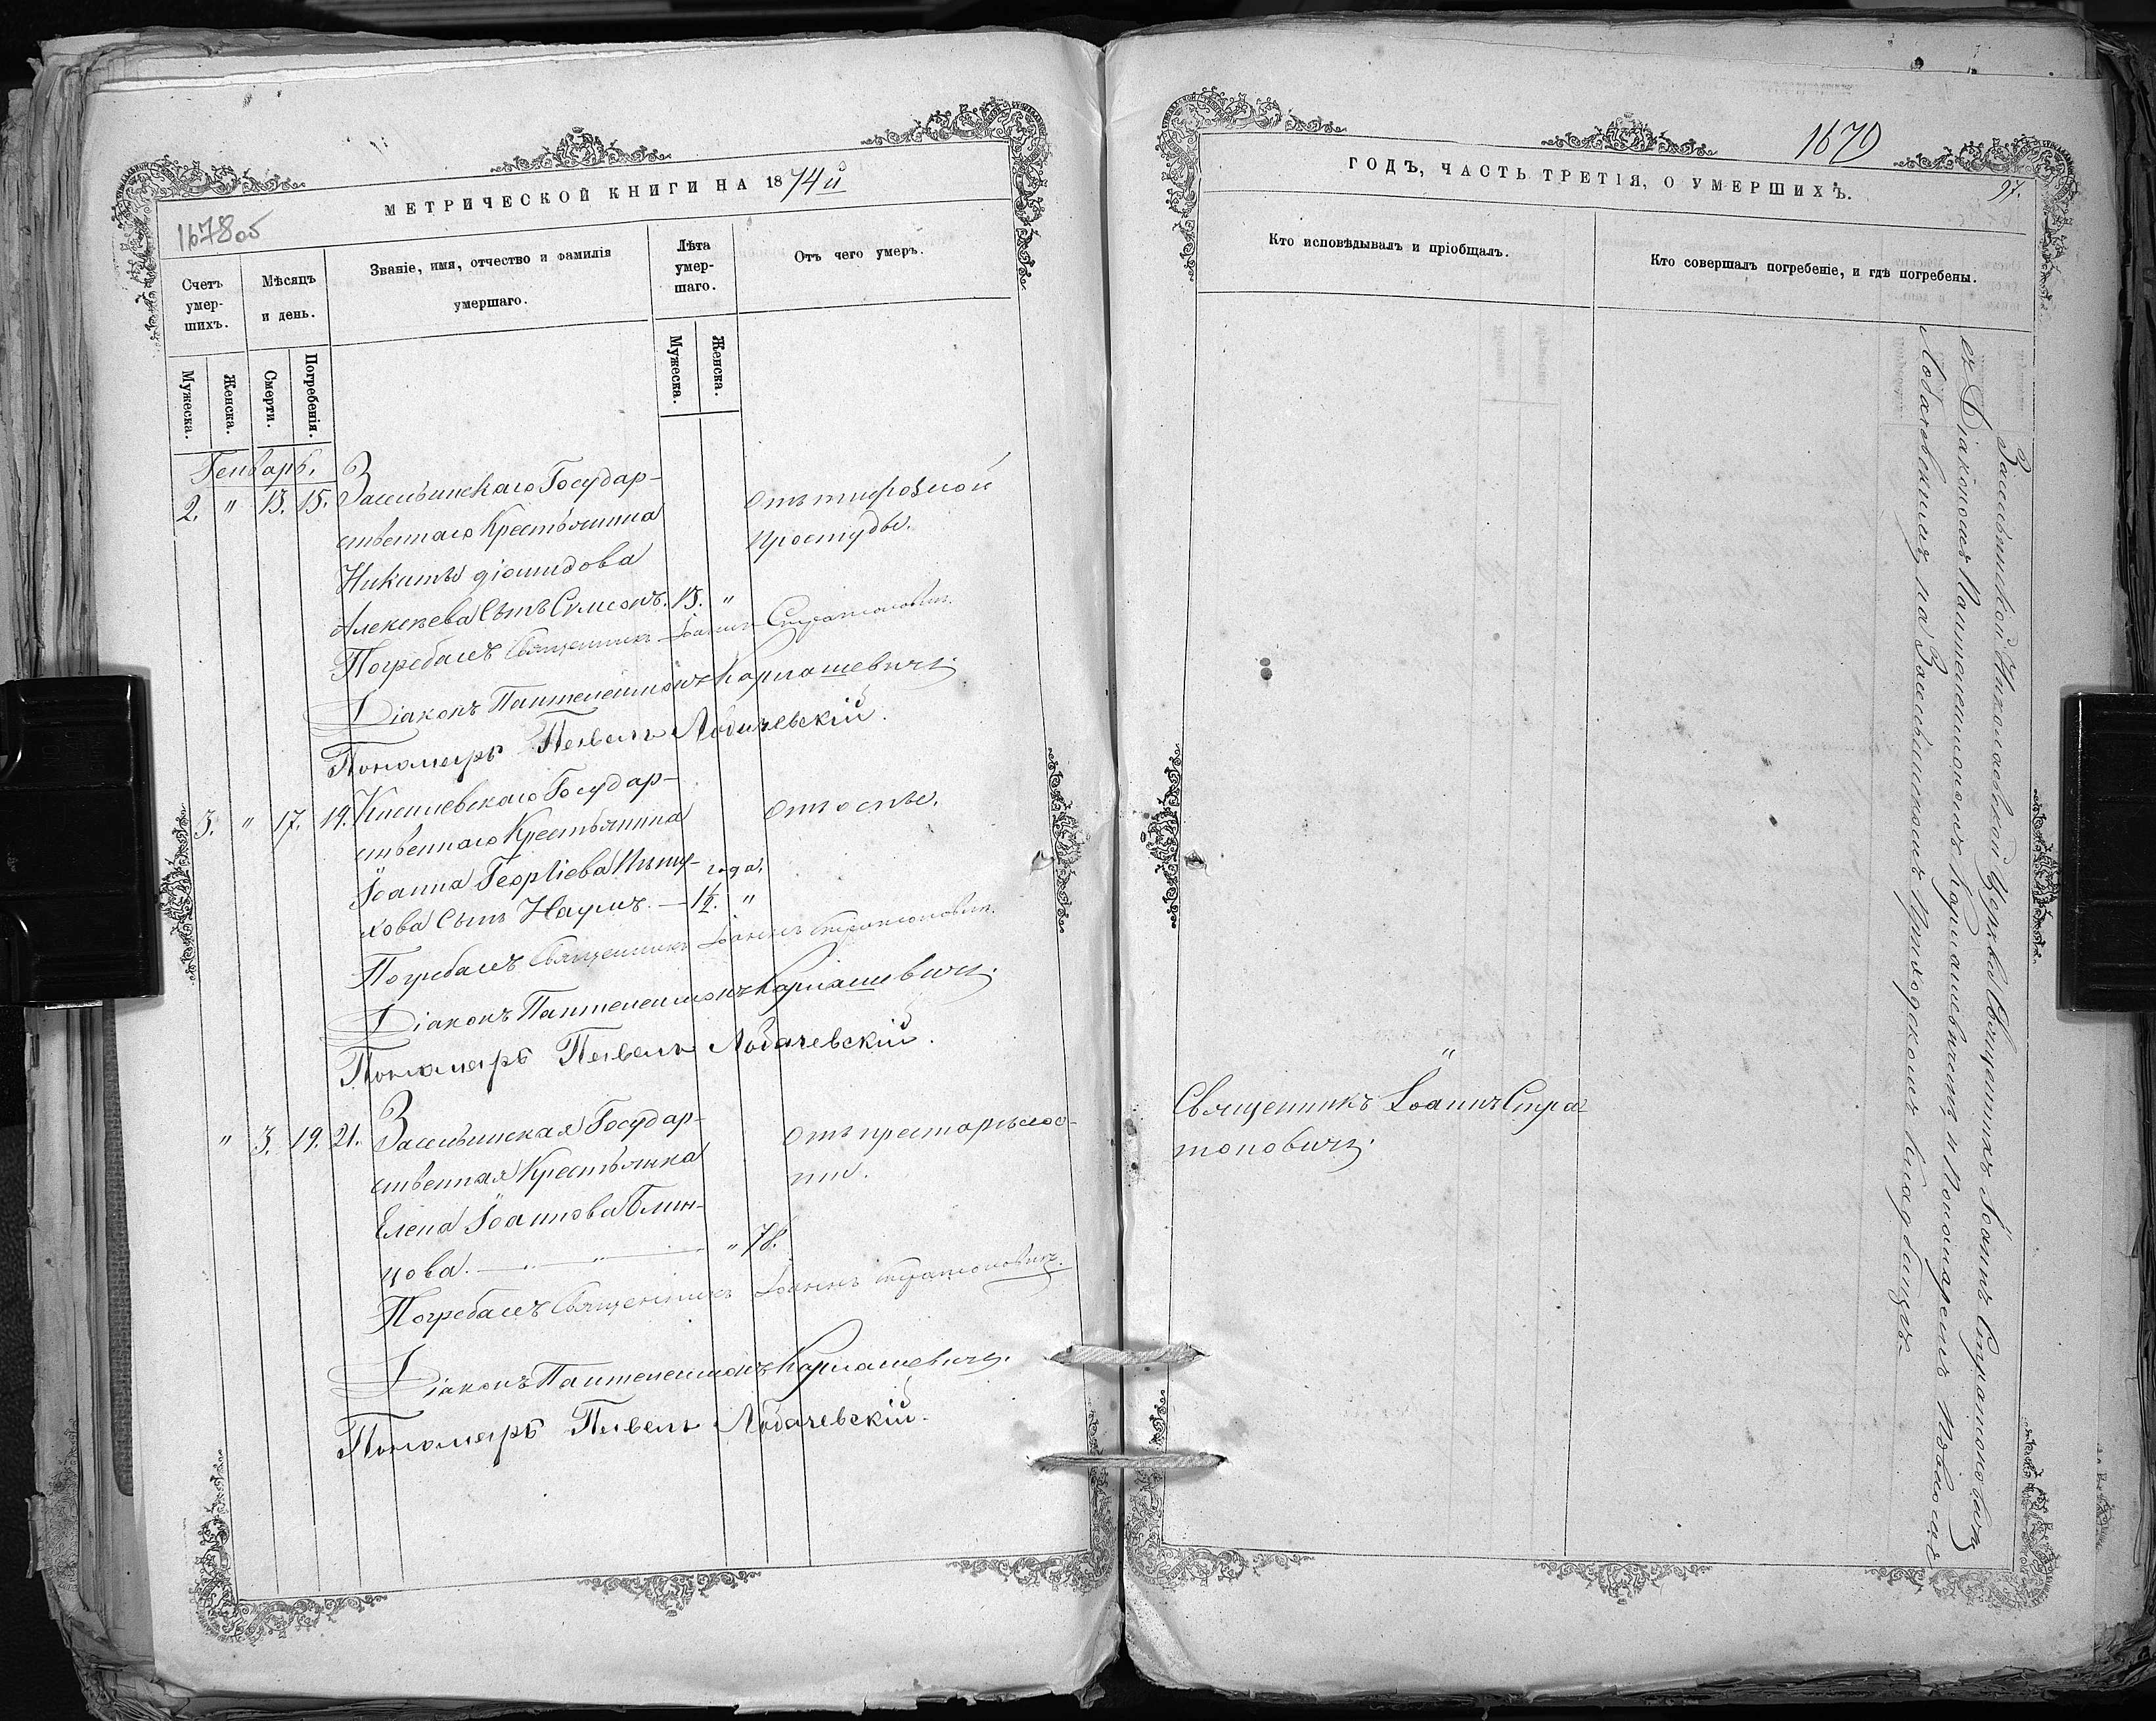 МЕТРИЧЕСКОЙ КНИГИ НА 1874й
1678об
Счетъ умершихъ.
Мѣсяцъ и день.
Званіе, имя, отчество и фамилія умершаго.
Лѣта умершаго.
Отъ чего умеръ.
Мужеска.
Женска.
Смерти.
Погребенія.
Мужеска.
Женска.
Генварь.
2. " 13. 15. Государ-
ственнаго Крестьянина
Никиты Діомидова
Алексѣева Сынъ Симеонъ. 13. "
Отъ тифозной
простуды.
Погребалъ Священникъ Іоаннъ Стратоновичъ.
Діаконъ Пантелеимонъ Карпашевичъ.
Пономарь Павелъ Лобачевскій.
3. " 17. 19. Государ-
ственнаго Крестьянина
Іоанна Георгіева
Сынъ Наумъ. — 1½ года. "
Отъ оспы.
Погребалъ Священникъ Іоаннъ Стратоновичъ.
Діаконъ Пантелеимонъ Карпашевичъ.
Пономарь Павелъ Лобачевскій.
" 3. 19. 21. Государ-
ственная Крестьянка
Елена Іоаннова Блин-
цова. — " 78.
Отъ престарѣлос-
ти.
Погребалъ Священникъ Іоаннъ Стратоновичъ.
Діаконъ Пантелеимонъ Карпашевичъ.
Пономарь Павелъ Лобачевскій.
1679
ГОДЪ, ЧАСТЬ ТРЕТІЯ, О УМЕРШИХЪ.
97.
Кто исповѣдывалъ и пріобщалъ.
Кто совершалъ погребеніе, и гдѣ погребены.
"
Священникъ Іоаннъ Стра-
тоновичъ.
Николаевской Церкви Священникъ Іоаннъ Стратоновичъ
съ Діакономъ Пантелеимономъ Карпашевичемъ и Пономаремъ Павломъ
Лобачевскимъ, на приходскомъ кладбищѣ.